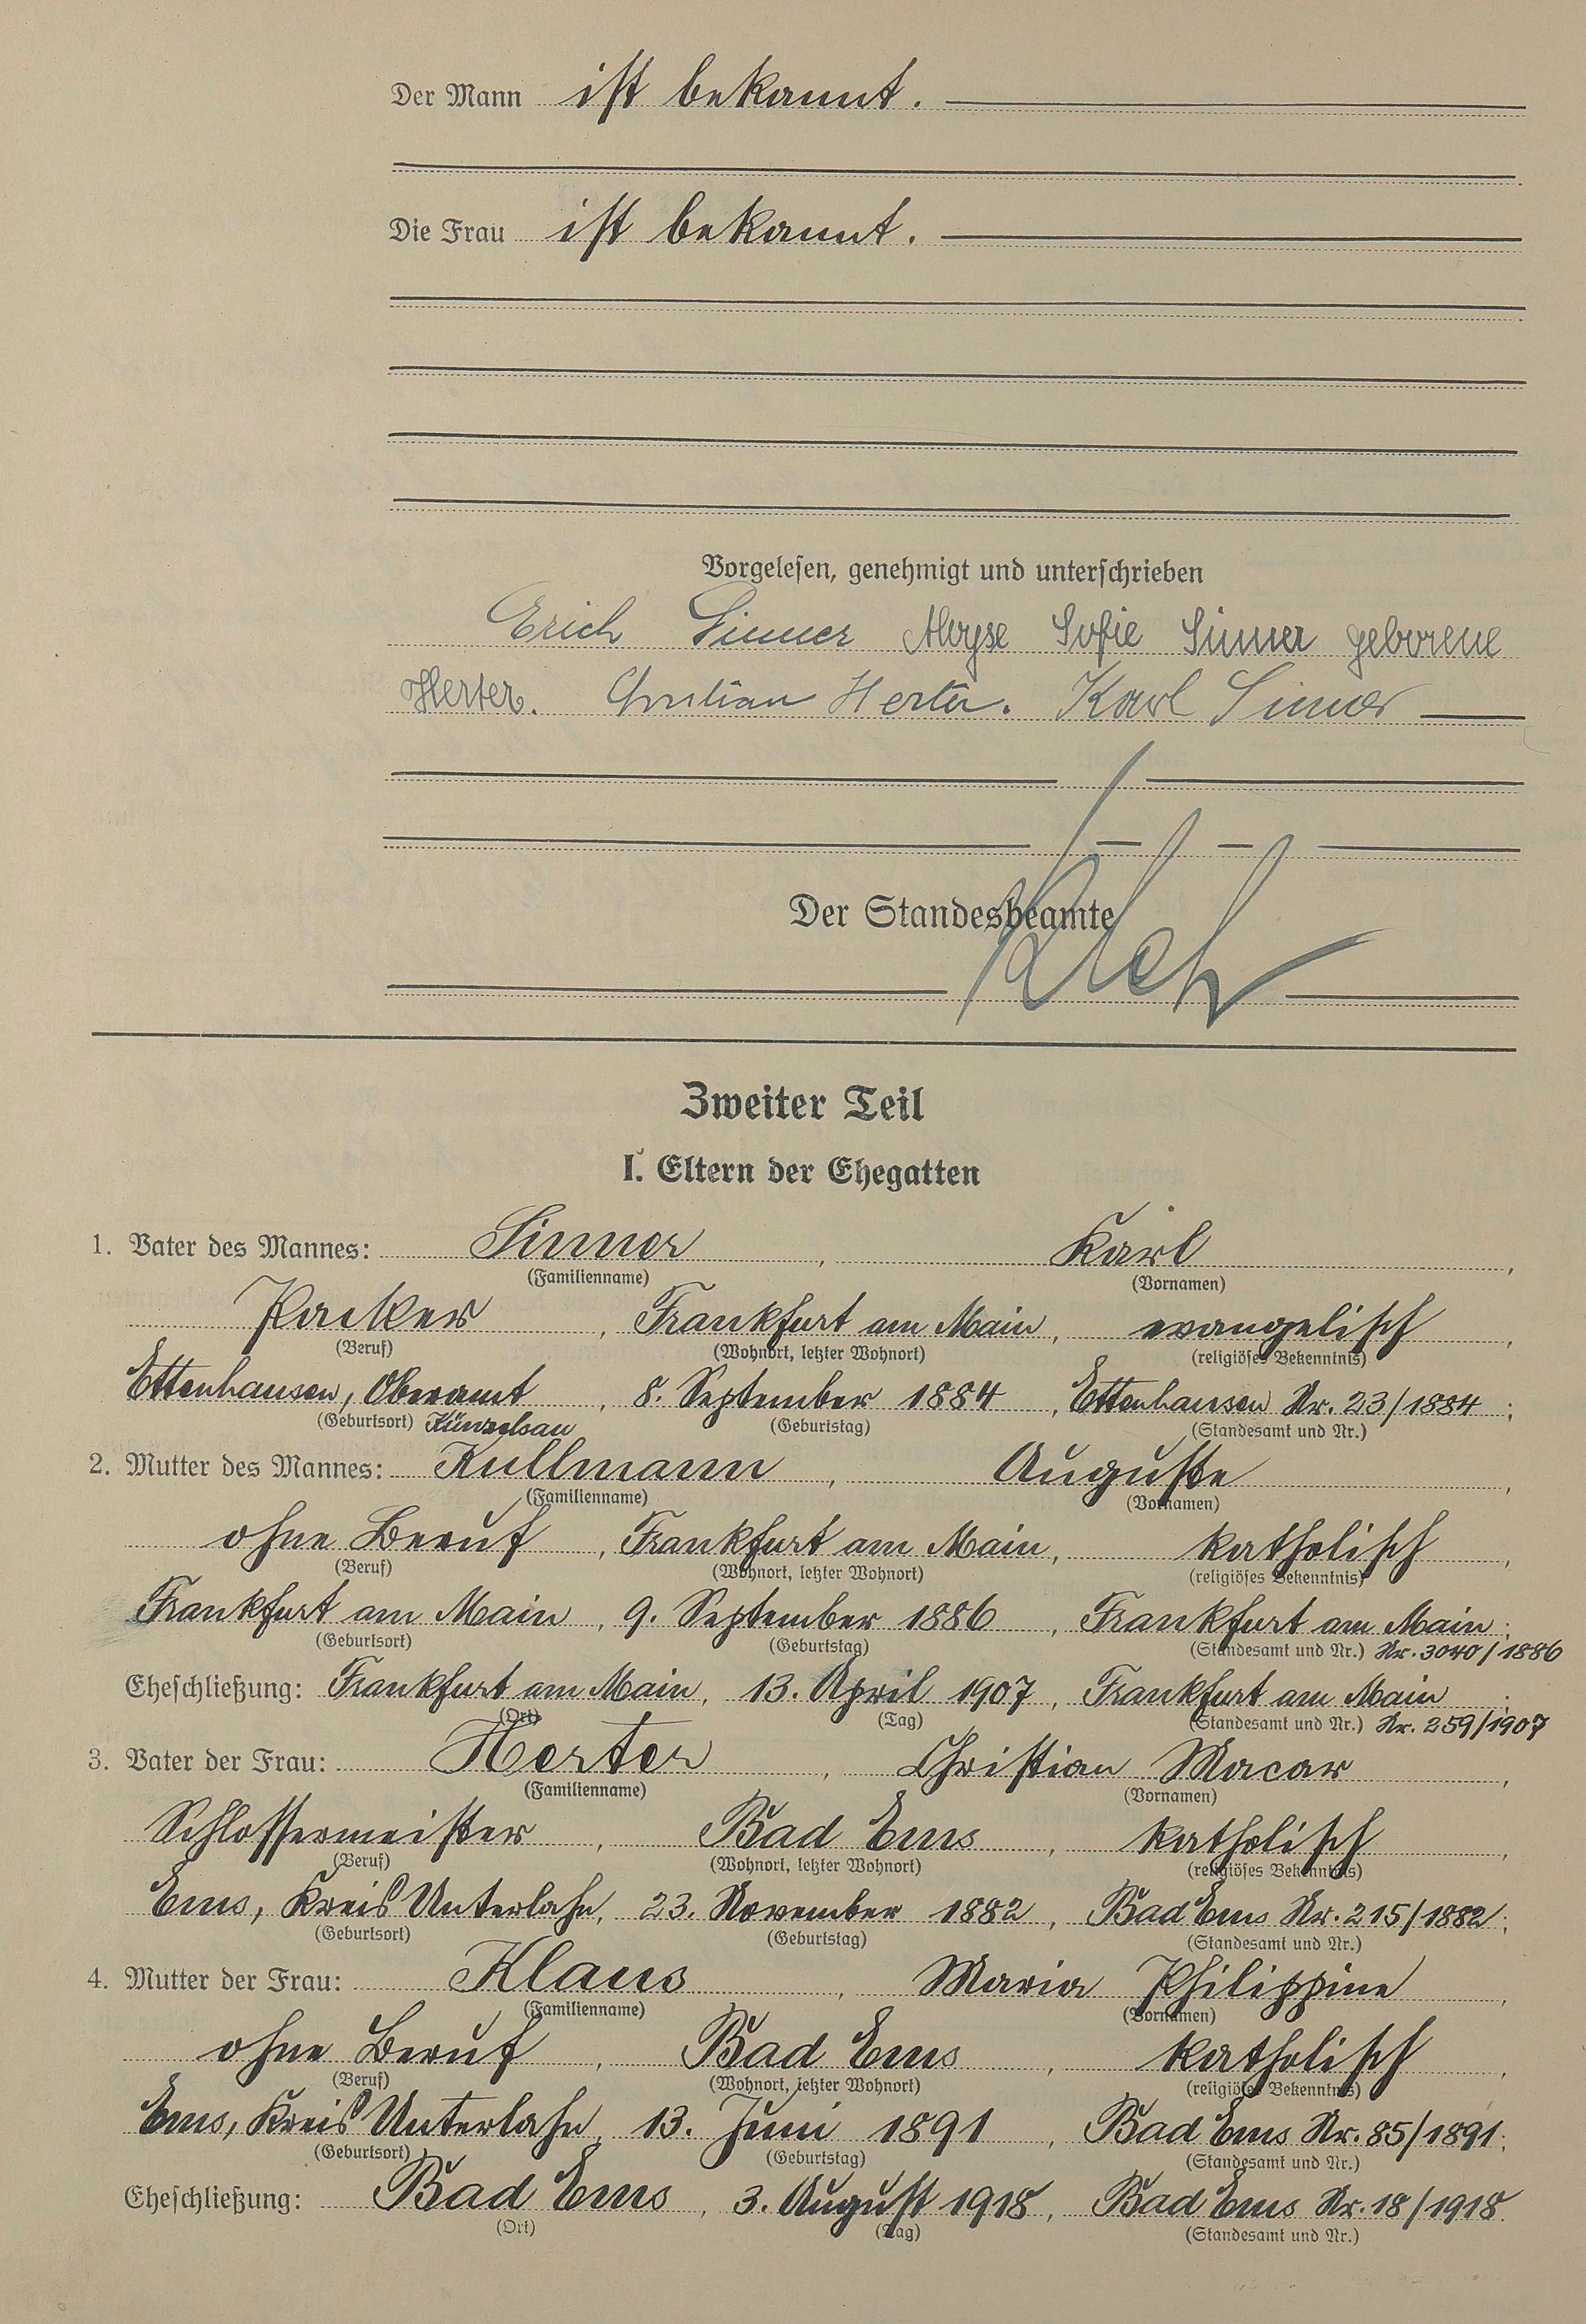 Der Mann ist bekannt.
Die Frau ist bekannt.
Vorgelesen, genehmigt und unterschrieben
Erich Sinner Aloyse Sofie Sinner geborene
Herter. Christian Herter. Karl Sinner
Der Standesbeamte
Zweiter Teil
I. Eltern der Ehegatten
1. Vater des Mannes: Sinner, Karl,
(Familienname) (Vornamen)
Packer, Frankfurt am Main, evangelisch,
(Beruf) (Wohnort, letzter Wohnort) (religiöses Bekenntnis)
Ettenhausen, Oberamt, 8. September 1884, Ettenhausen Nr. 23/1884;
(Geburtsort) Künzelsau (Geburtstag) (Standesamt und Nr.)
2. Mutter des Mannes: Kullmann, Auguste,
(Familienname) (Vornamen)
ohne Beruf, Frankfurt am Main, katholisch,
(Beruf) (Wohnort, letzter Wohnort) (religiöses Bekenntnis)
Frankfurt am Main, 9. September 1886, Frankfurt am Main;
(Geburtsort) (Geburtstag) (Standesamt und Nr.) Nr. 3040/1886
Eheschließung: Frankfurt am Main, 13. April 1907, Frankfurt am Main;
(Ort) (Tag) (Standesamt und Nr.) Nr. 259/1907
3. Vater der Frau: Herter, Christian Macar,
(Familienname) (Vornamen)
Schlossermeister, Bad Ems, katholisch,
(Beruf) (Wohnort, letzter Wohnort) (religiöses Bekenntnis)
Ems, Kreis Unterlahn, 23. November 1882, Bad Ems Nr. 215/1882;
(Geburtsort) (Geburtstag) (Standesamt und Nr.)
4. Mutter der Frau: Klaus, Maria Philippine,
(Familienname) (Vornamen)
ohne Beruf, Bad Ems, katholisch,
(Beruf) (Wohnort, letzter Wohnort) (religiöses Bekenntnis)
Ems, Kreis Unterlahn, 13. Juni 1891, Bad Ems Nr. 85/1891;
(Geburtsort) (Geburtstag) (Standesamt und Nr.)
Eheschließung: Bad Ems, 3. August 1918, Bad Ems Nr. 18/1918.
(Ort) (Tag) (Standesamt und Nr.)